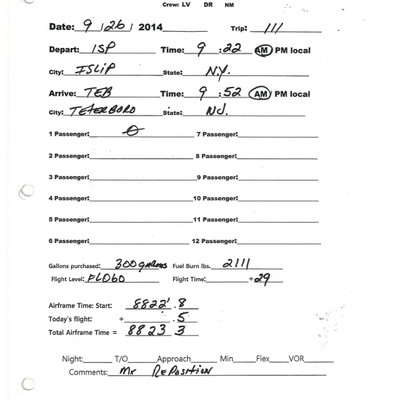 Crew: LV DR NM
Date: 9 / 26 / 2014 Trip: 111
Depart: ISP Time: 9 : 22 AM PM local
City: ISLIP State: N.Y.
Arrive: TEB Time: 9 : 52 AM PM local
City: TETERBORO State: NJ.
1 Passenger: 0 7 Passenger:
2 Passenger: 8 Passenger:
3 Passenger: 9 Passenger:
4 Passenger: 10 Passenger:
5 Passenger: 11 Passenger:
6 Passenger: 12 Passenger:
Gallons purchased: 300 gallons Fuel Burn lbs. 2111
Flight Level: FL060 Flight Time: +29
Airframe Time: Start: 8822 .8
Today's flight: + .5
Total Airframe Time = 8823 3
Night: T/O Approach Min Flex VOR
Comments: Mx Reposition